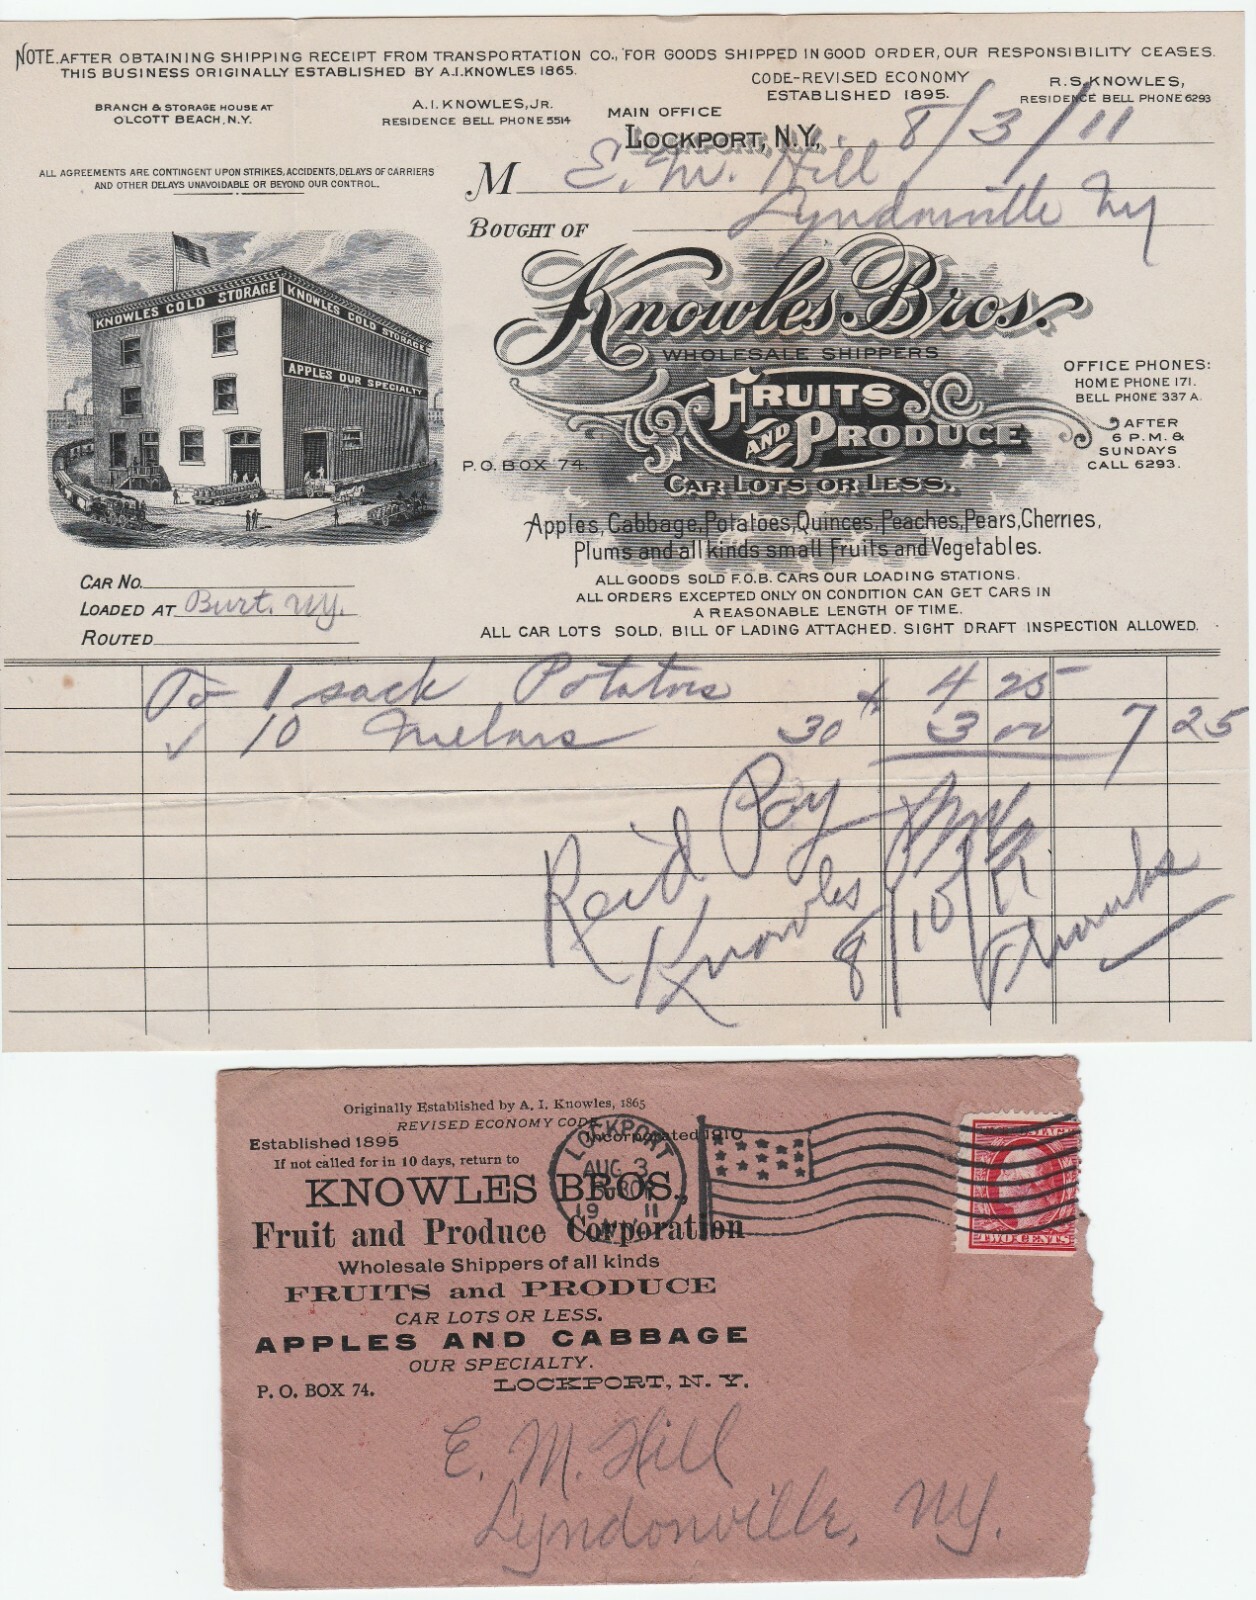 NOTE. AFTER OBTAINING SHIPPING RECEIPT FROM TRANSPORTATION CO., FOR GOODS SHIPPED IN GOOD ORDER, OUR RESPONSIBILITY CEASES.
THIS BUSINESS ORIGINALLY ESTABLISHED BY A.I. KNOWLES 1865.
CODE-REVISED ECONOMY
ESTABLISHED 1895.
R.S. KNOWLES,
RESIDENCE BELL PHONE 6293
BRANCH & STORAGE HOUSE AT
OLCOTT BEACH, N.Y.
A.I. KNOWLES, JR.
RESIDENCE BELL PHONE 5514
MAIN OFFICE
LOCKPORT, N.Y., 8/3/11
ALL AGREEMENTS ARE CONTINGENT UPON STRIKES, ACCIDENTS, DELAYS OF CARRIERS
AND OTHER DELAYS UNAVOIDABLE OR BEYOND OUR CONTROL.
M E. M. Hill
Lyndonville Ny
BOUGHT OF
Knowles Bros.
WHOLESALE SHIPPERS
FRUITS
AND PRODUCE
CAR LOTS OR LESS.
P.O. BOX 74.
OFFICE PHONES:
HOME PHONE 171.
BELL PHONE 337 A.
AFTER
6 P.M. &
SUNDAYS
CALL 6293.
KNOWLES COLD STORAGE
KNOWLES COLD STORAGE
APPLES OUR SPECIALTY
Apples, Cabbage, Potatoes, Quinces, Peaches, Pears, Cherries,
Plums and all kinds small Fruits and Vegetables.
ALL GOODS SOLD F.O.B. CARS OUR LOADING STATIONS.
ALL ORDERS EXCEPTED ONLY ON CONDITION CAN GET CARS IN
A REASONABLE LENGTH OF TIME.
ALL CAR LOTS SOLD, BILL OF LADING ATTACHED. SIGHT DRAFT INSPECTION ALLOWED.
CAR NO.
LOADED AT Burt. Ny.
ROUTED
To 1 sack Potatoes 4 25
✓ 10 Melons 30 3 00 7 25
Rec'd Pay
Knowles 8/10/11
Thanks
Originally Established by A. I. Knowles, 1865
REVISED ECONOMY CODE
Established 1895 Incorporated 1910
If not called for in 10 days, return to
KNOWLES BROS.,
Fruit and Produce Corporation
Wholesale Shippers of all kinds
FRUITS and PRODUCE
CAR LOTS OR LESS.
APPLES AND CABBAGE
OUR SPECIALTY.
P. O. BOX 74. LOCKPORT, N. Y.
LOCKPORT
AUG 3
19 11
N.Y.
TWO CENTS
E. M. Hill
Lyndonville, Ny.